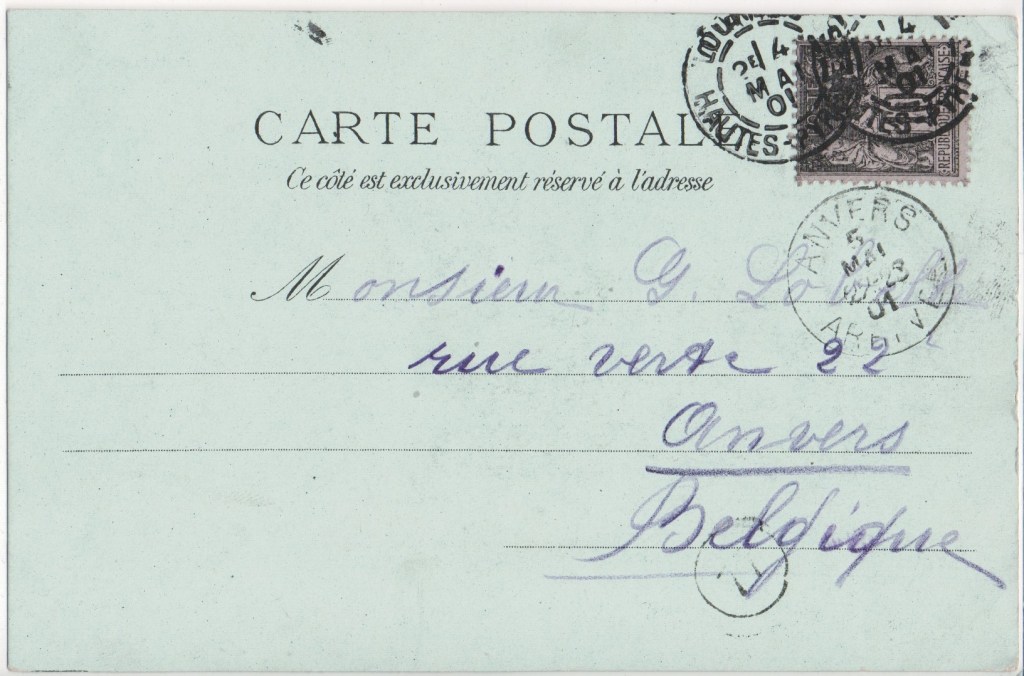 CARTE POSTALE
Ce côté est exclusivement réservé à l'adresse
Monsieur G.
rue verte 22
Anvers
Belgique
2E 4
MAI
01
HAUTES-PYRÉNÉES
4
MAI
01
REPUBLIQUE FRANÇAISE
ANVERS
5
MAI
01
ARRIVÉE